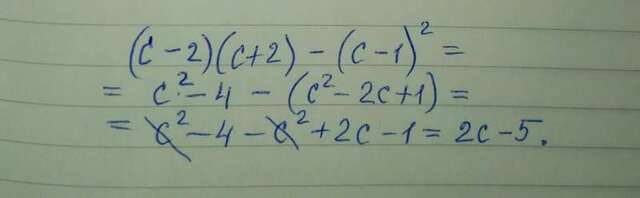 (c-2)(c+2) - (c-1)² =
= c² - 4 - (c² - 2c + 1) =
= c² - 4 - c² + 2c - 1 = 2c - 5.